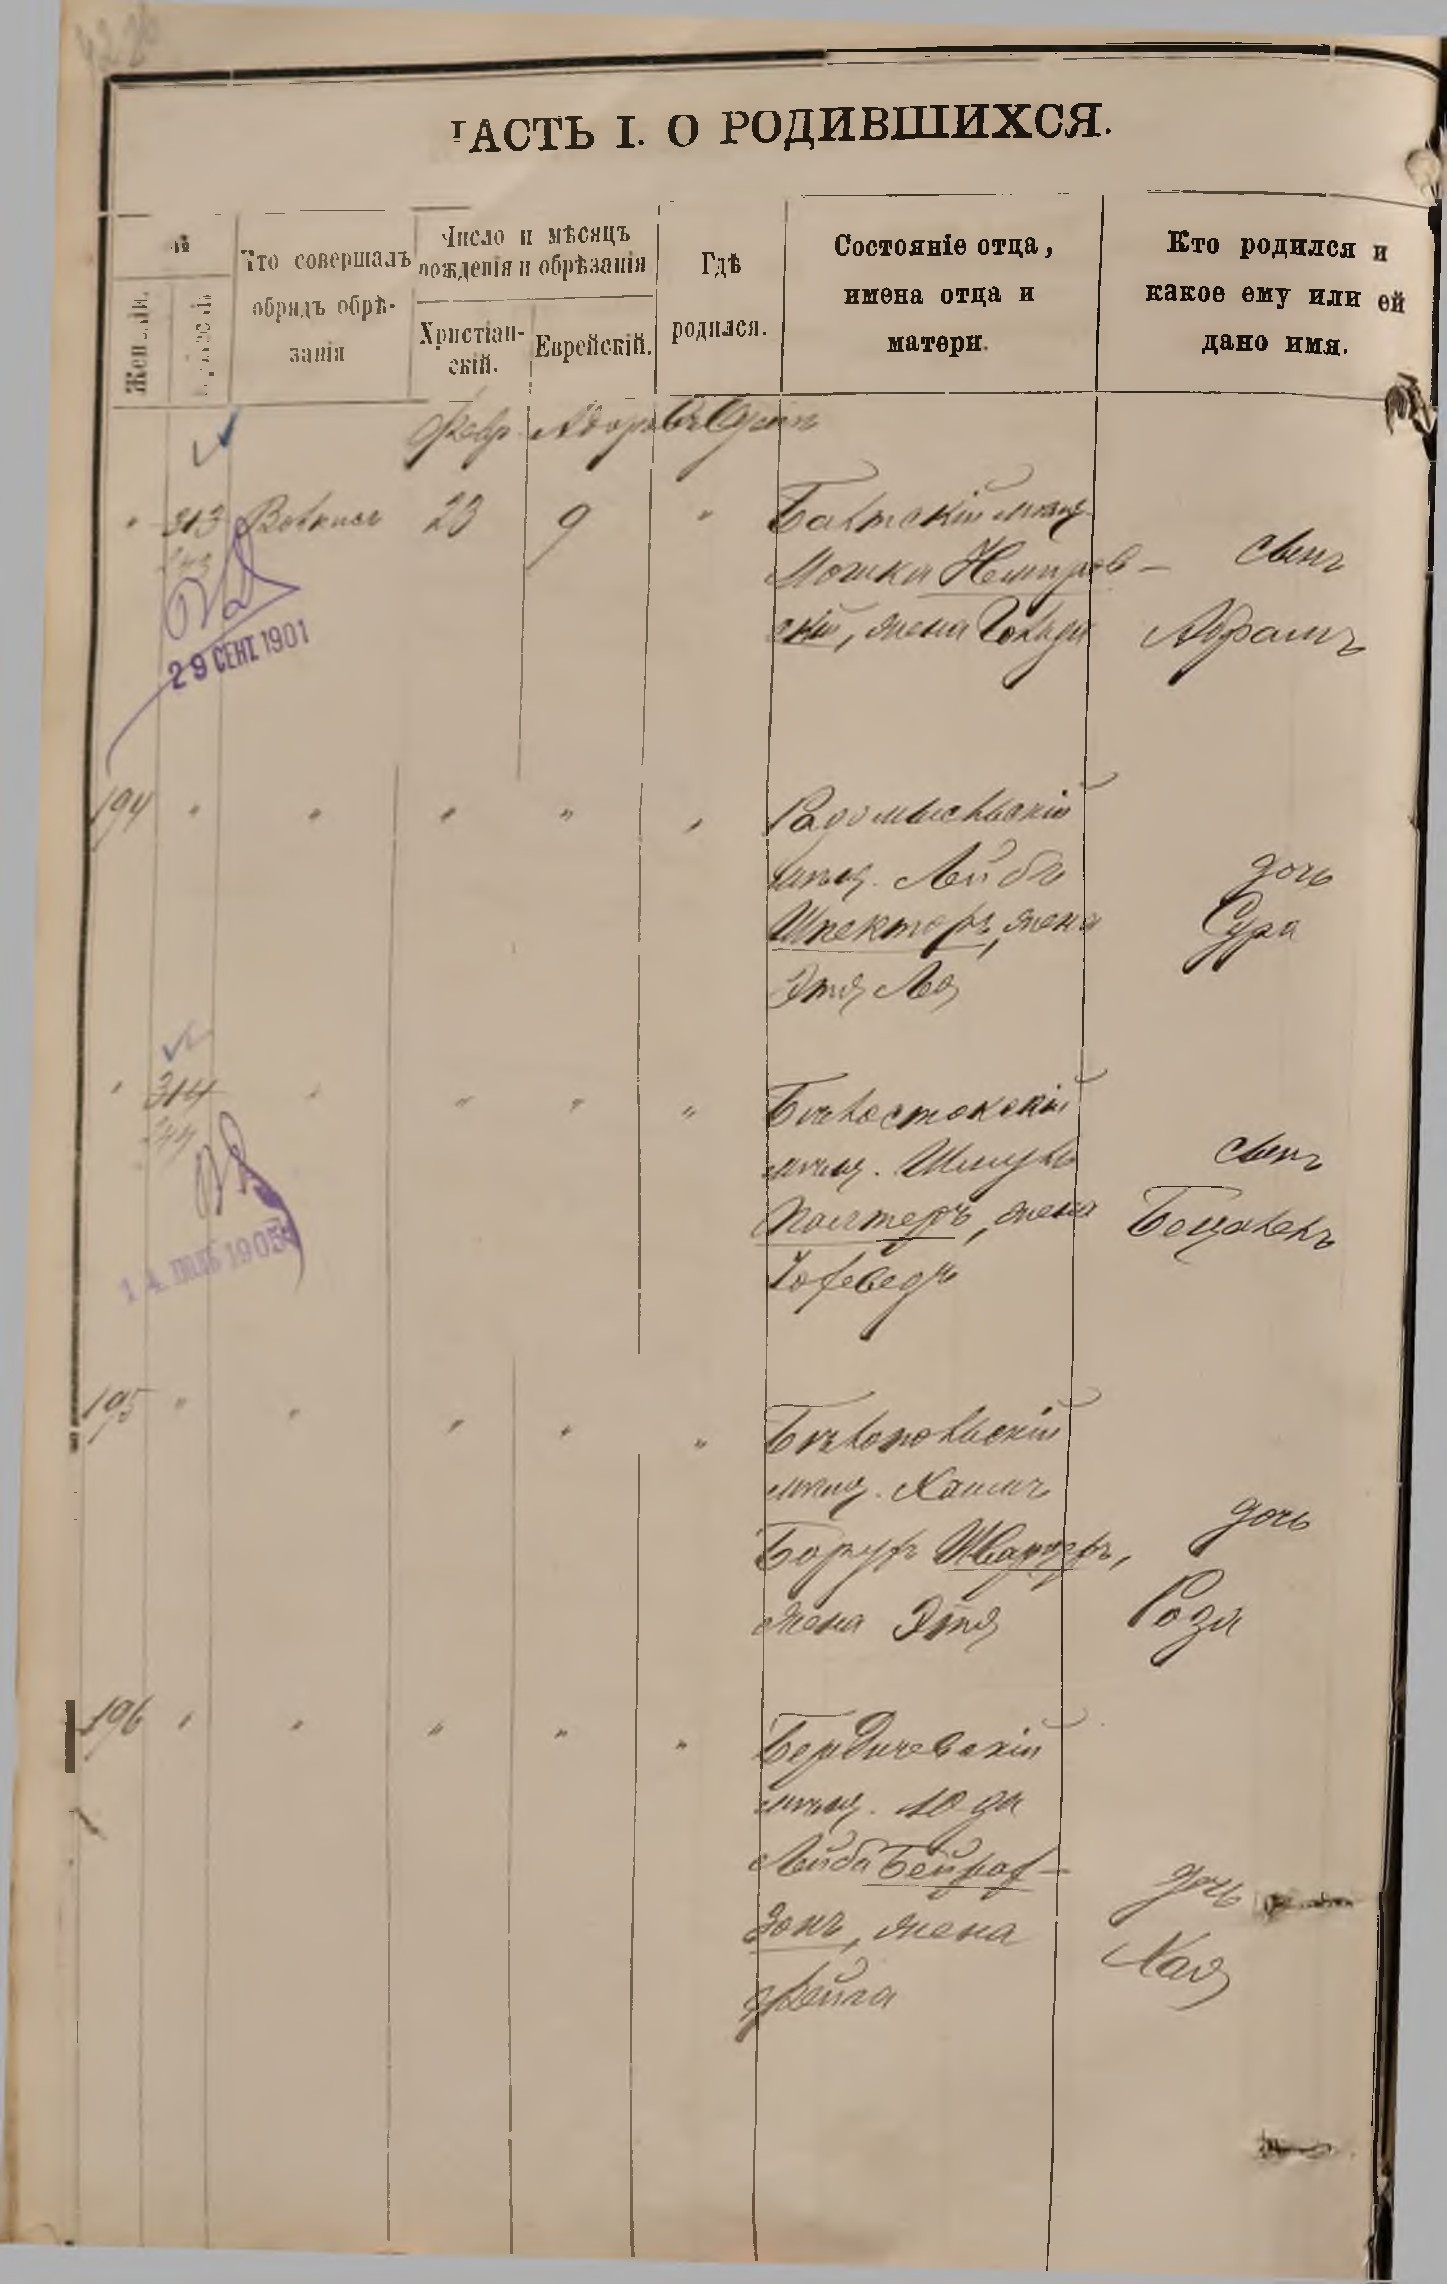 ЧАСТЬ I. О РОДИВШИХСЯ.
№
Женскій.
Мужескій.
Кто совершалъ
обрядъ обрѣ-
занія
Число и мѣсяцъ
рожденія и обрѣзанія
Христіан-
скій.
Еврейскій.
Гдѣ
родился.
Состояніе отца,
имена отца и
матери.
Кто родился и
какое ему или ей
дано имя.
Февр. Адоръ Въ Одессѣ
" 313 Волкисъ 23 9 "
Балтскій мѣщ.
Мошка Немиров-
скій, жена Гольда
сынъ
Абрамъ
29 СЕНТ 1901
194 " " " " "
Радомысльскій
мѣщ. Лейбъ
Шпекторъ, жена
Этя Лея
дочь
Сура
" 314 " " " "
Бѣлостокскій
мѣщ. Шмуль
Полтеръ, жена
Іохеведъ
сынъ
Бецалель
14 1905
195 " " " " "
Бѣлопольскій
мѣщ. Хаимъ
Борухъ Шварцъ,
жена Этя
дочь
Роза
196 " " " " "
Бердичевскій
мѣщ. Юда
Лейба Бейрах-
зонъ, жена
Фейга
дочь
Хая